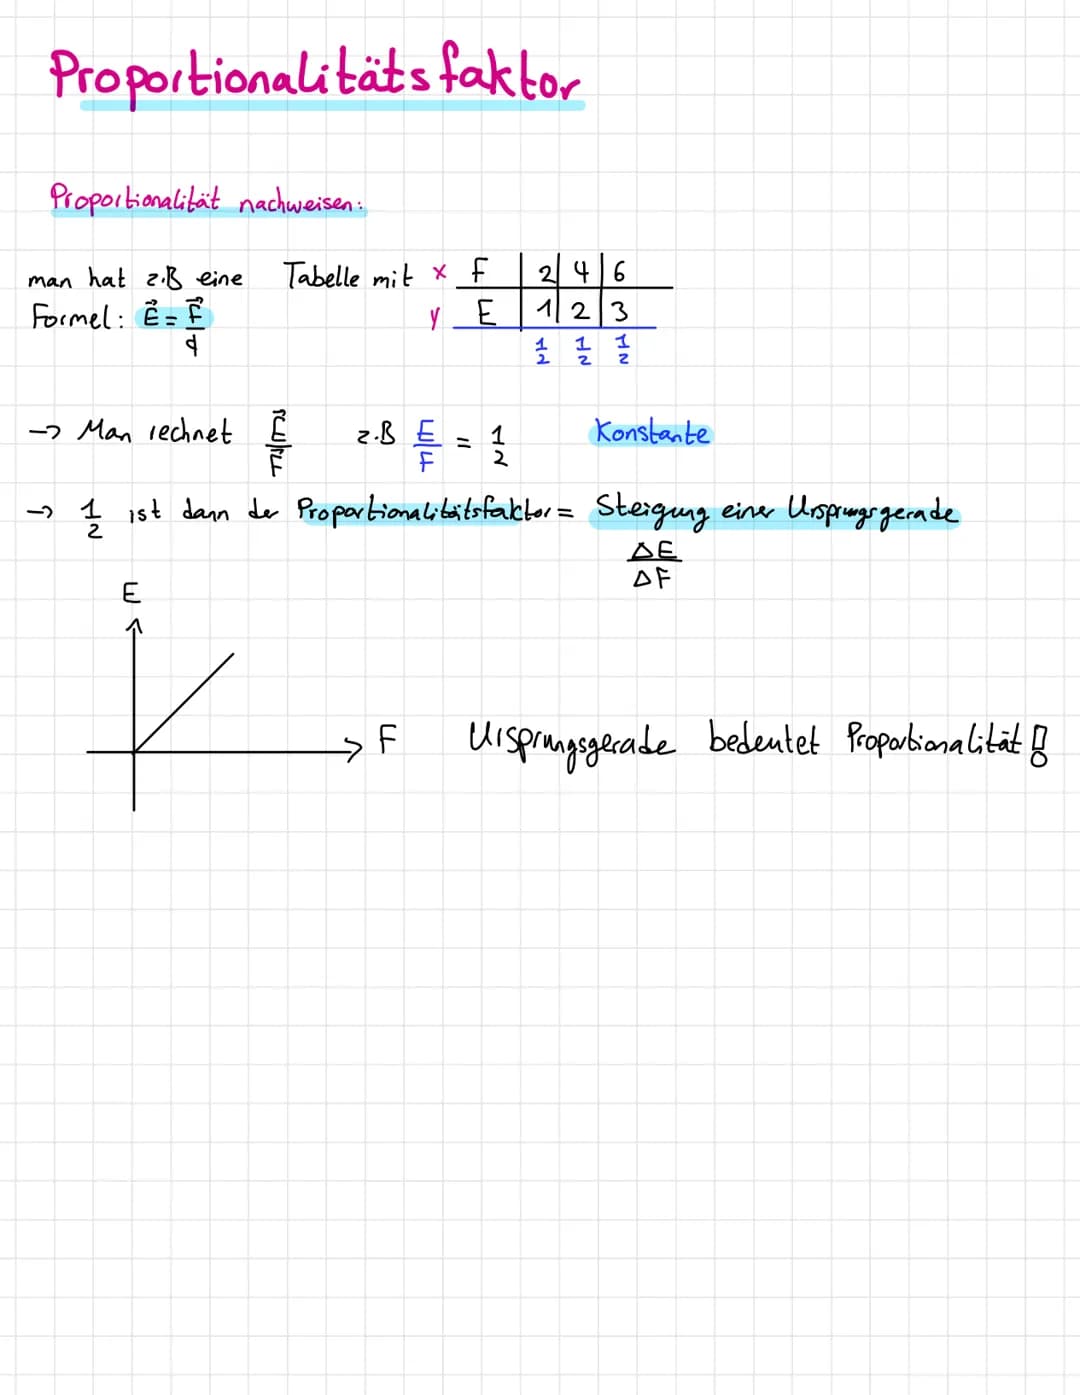 Proportionalitätsfaktor
Proportionalität nachweisen:
man hat z.B eine Tabelle mit x F | 2 | 4 | 6
Formel: E⃗ = F⃗/q y E | 1 | 2 | 3
1/2 1/2 1/2
→ Man rechnet E⃗/F⃗ z.B E/F = 1/2 Konstante
→ 1/2 ist dann der Proportionalitätsfaktor = Steigung einer Ursprungsgerade
ΔE/ΔF
E
F Ursprungsgerade bedeutet Proportionalität!